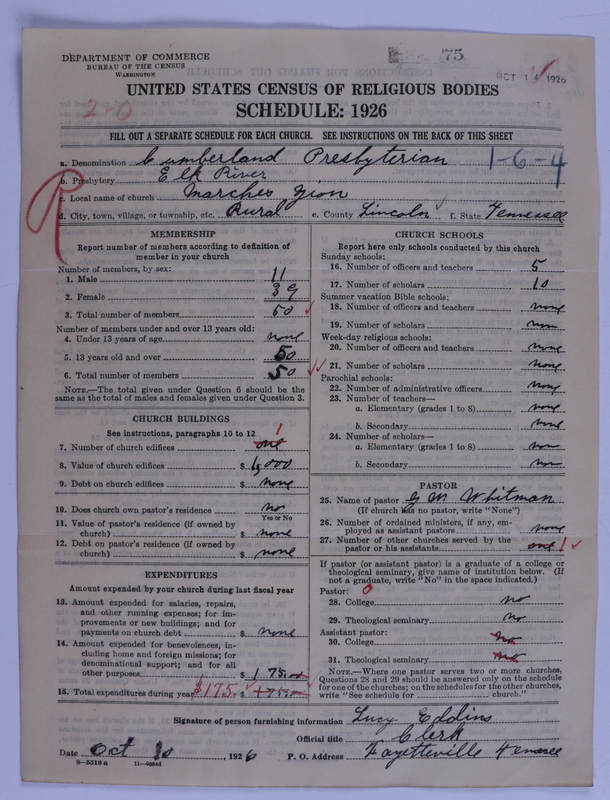 DEPARTMENT OF COMMERCE
BUREAU OF THE CENSUS
WASHINGTON
75
OCT 14 1926
UNITED STATES CENSUS OF RELIGIOUS BODIES
SCHEDULE: 1926
2-0
FILL OUT A SEPARATE SCHEDULE FOR EACH CHURCH. SEE INSTRUCTIONS ON THE BACK OF THIS SHEET
a. Denomination Cumberland Presbyterian 1-6-4
b. Presbytery Elk River
c. Local name of church Marches Zion
R
d. City, town, village, or township, etc. Rural e. County Lincoln f. State Tennessee
MEMBERSHIP
Report number of members according to definition of
member in your church
Number of members, by sex:
1. Male 11
2. Female 39
3. Total number of members 50
Number of members under and over 13 years old:
4. Under 13 years of age none
5. 13 years old and over 50
6. Total number of members 50
NOTE.—The total given under Question 6 should be the
same as the total of males and females given under Question 3.
CHURCH BUILDINGS
See instructions, paragraphs 10 to 12
7. Number of church edifices one 1
8. Value of church edifices $ 1,000
9. Debt on church edifices $ none
10. Does church own pastor's residence no
Yes or No
11. Value of pastor's residence (if owned by
church) $ none
12. Debt on pastor's residence (if owned by
church) $ none
EXPENDITURES
Amount expended by your church during last fiscal year
13. Amount expended for salaries, repairs,
and other running expenses; for im-
provements or new buildings; and for
payments on church debt $ none
14. Amount expended for benevolences, in-
cluding home and foreign missions; for
denominational support; and for all
other purposes $ 175.00
15. Total expenditures during year $175 $ 175.00
CHURCH SCHOOLS
Report here only schools conducted by this church
Sunday schools:
16. Number of officers and teachers 5
17. Number of scholars 10
Summer vacation Bible schools:
18. Number of officers and teachers none
19. Number of scholars none
Week-day religious schools:
20. Number of officers and teachers none
21. Number of scholars none
Parochial schools:
22. Number of administrative officers none
23. Number of teachers—
a. Elementary (grades 1 to 8) none
b. Secondary none
24. Number of scholars—
a. Elementary (grades 1 to 8) none
b. Secondary none
PASTOR
25. Name of pastor G M Whitman
(If church has no pastor, write "None")
26. Number of ordained ministers, if any, em-
ployed as assistant pastors none
27. Number of other churches served by the
pastor or his assistants one 1
If pastor (or assistant pastor) is a graduate of a college or
theological seminary, give name of institution below. (If
not a graduate, write "No" in the space indicated.)
Pastor: 0
28. College no
29. Theological seminary no
Assistant pastor:
30. College no
31. Theological seminary no
NOTE.—Where one pastor serves two or more churches,
Questions 28 and 29 should be answered only on the schedule
for one of the churches; on the schedules for the other churches,
write "See schedule for church."
Signature of person furnishing information Lucy Eddins
Official title Clerk
Date Oct 10, 1926 P. O. Address Fayetteville Tennessee
8-5518a 11-9684